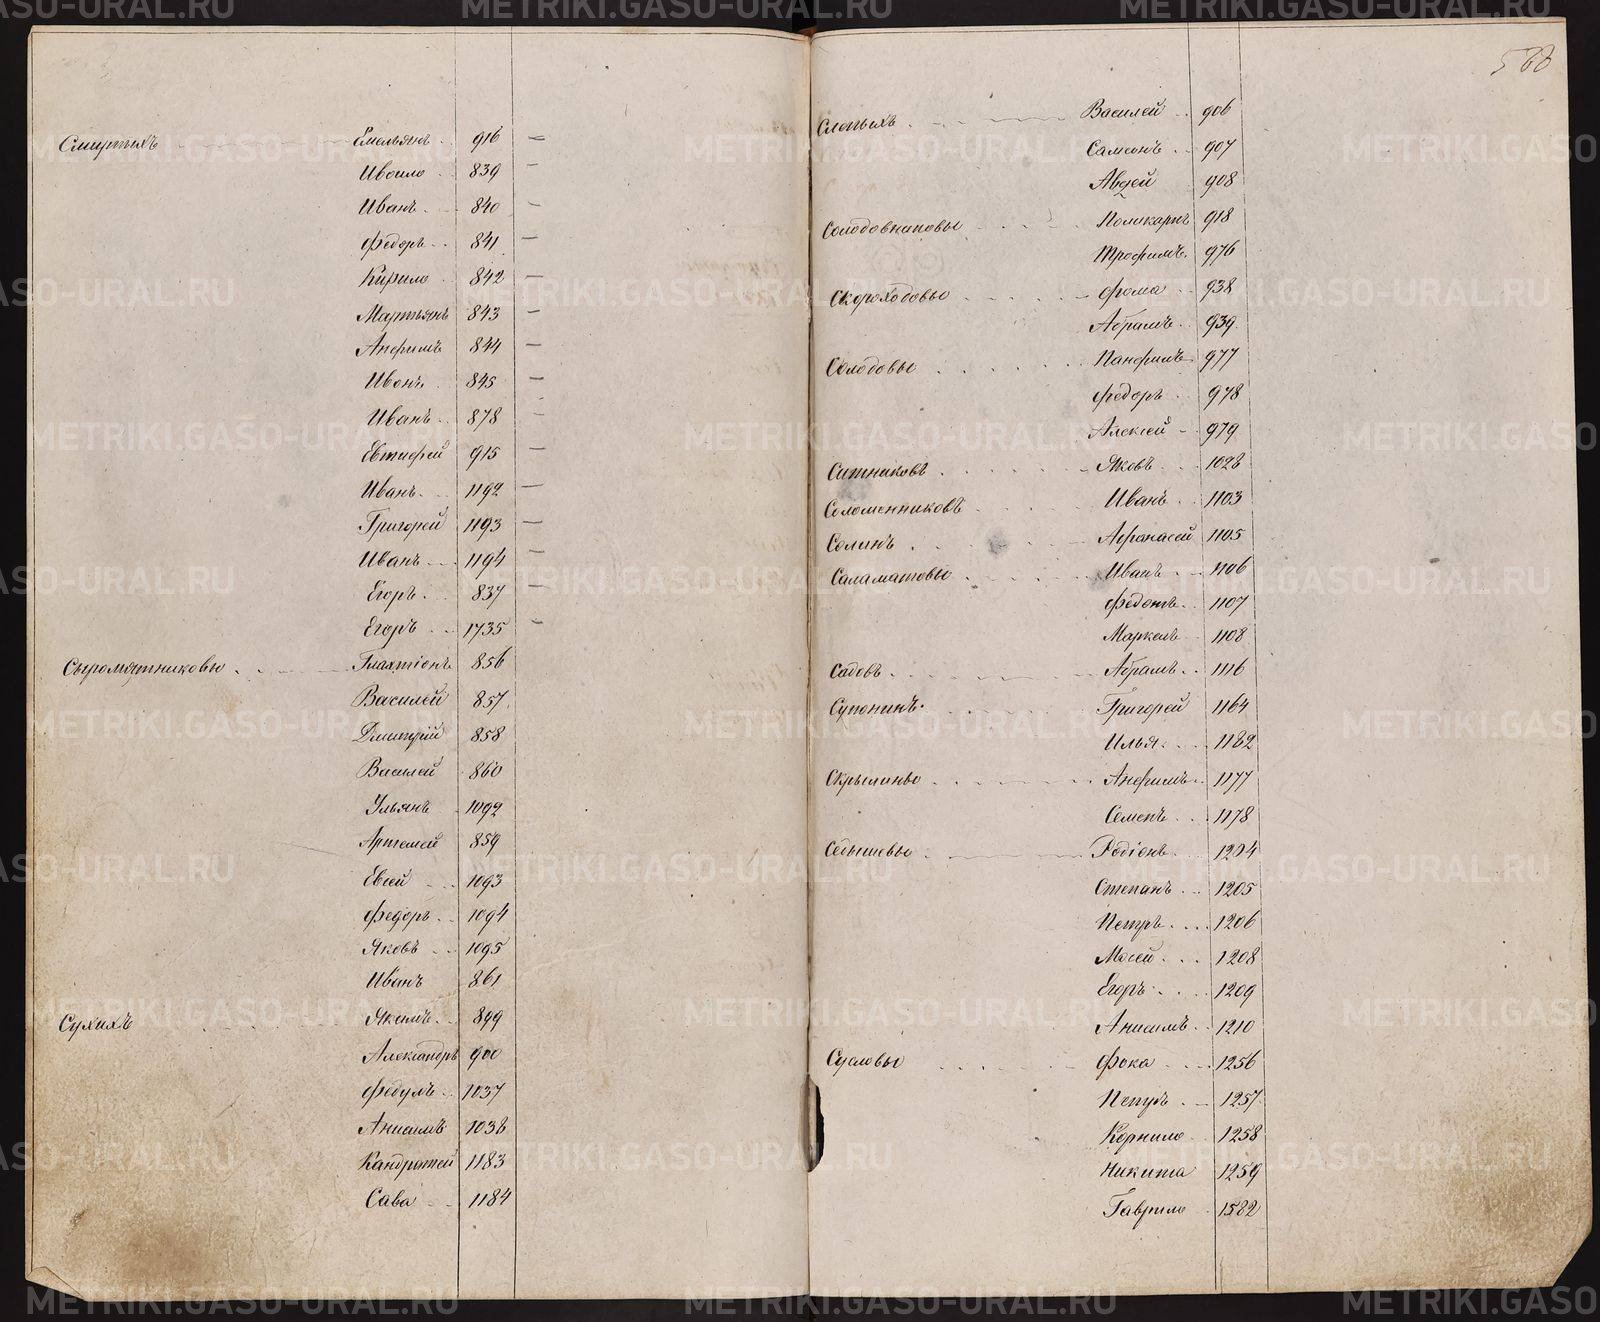 Смирныхъ Емельянъ 916 —
Ивойло 839 —
Иванъ 840 —
Федоръ 841 —
Кирило 842 —
Мартьянъ 843 —
Анфимъ 844 —
Ивонъ 845 —
Иванъ 878 —
Евтифей 915 —
Иванъ 1192 —
Григорей 1193 —
Иванъ 1194 —
Егоръ 837 —
Егоръ 1735 —
Сыромятниковы Галахтіонъ 856
Василей 857
Дмитрій 858
Василей 860
Ульянъ 1092
Артемей 859
Евсей 1093
Федоръ 1094
Яковъ 1095
Иванъ 861
Сухихъ Якимъ 899
Александръ 900
Федулъ 1037
Анисимъ 1038
Кандратей 1183
Сава 1184
588
Слепыхъ Василей 906
Самсонъ 907
Авдей 908
Солодовниковы Поликарпъ 918
Трофимъ 976
Скороходовы Фома 938
Абрамъ 939
Солодовы Панфилъ 977
Федоръ 978
Алексей 979
Ситниковъ Яковъ 1028
Соломенниковъ Иванъ 1103
Солинъ Афонасей 1105
Саламатовы Иванъ 1106
Федотъ 1107
Маркелъ 1108
Садовъ Абрамъ 1116
Супонинъ Григорей 1164
Илья 1182
Скрылины Анфимъ 1177
Семенъ 1178
Седышевы Родіонъ 1204
Степанъ 1205
Петръ 1206
Мосей 1208
Егоръ 1209
Анисимъ 1210
Сусловы Фока 1256
Петръ 1257
Корнило 1258
Никита 1259
Гаврило 1582